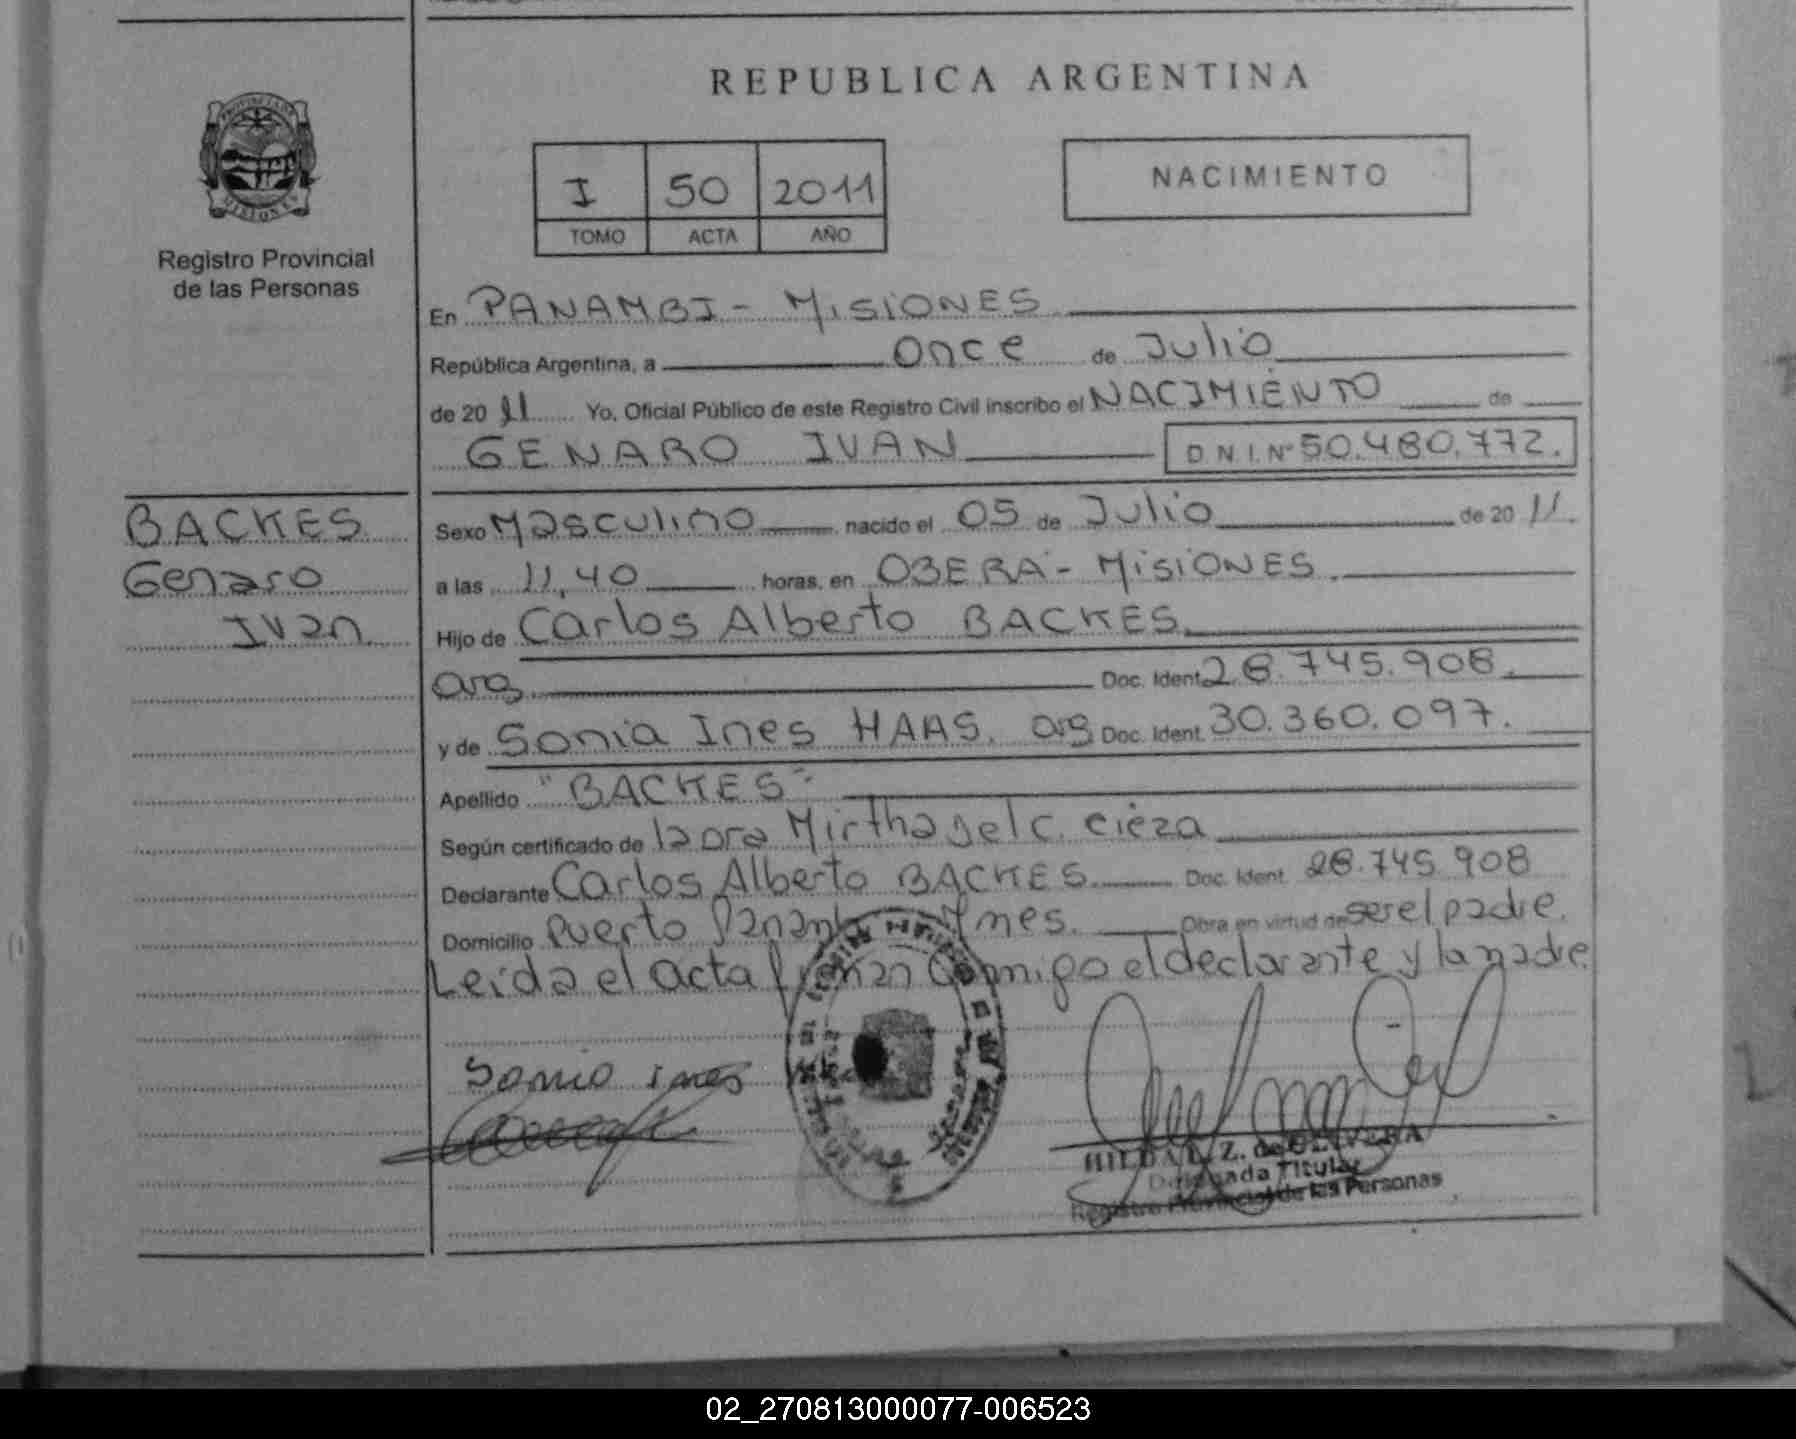 REPUBLICA ARGENTINA
PROVINCIA DE
MISIONES
Registro Provincial
de las Personas
I 50 2011
TOMO ACTA AÑO
NACIMIENTO
En PANAMBI - MISIONES
República Argentina, a Once de Julio
de 20 11 Yo, Oficial Público de este Registro Civil inscribo el NACIMIENTO de
GENARO IVAN D.N.I. Nº 50.480.772.
BACKES
Genaro
Ivan
Sexo Masculino nacido el 05 de Julio de 20 11.
a las 11,40 horas, en OBERA - MISIONES.
Hijo de Carlos Alberto BACKES.
arg. Doc. Ident. 28.745.908.
y de Sonia Ines HAAS. arg Doc. Ident. 30.360.097.
Apellido "BACKES"
Según certificado de la Dra Mirtha del C. Cieza
Declarante Carlos Alberto BACKES. Doc. Ident. 28.745.908
Domicilio Puerto Panambi Mnes. Obra en virtud de ser el padre.
Leida el acta firman Conmigo el declarante y la madre
Sonia ines
HILDA L. Z. de OLIVERA
Delegada Titular
Registro Provincial de las Personas
02_270813000077-006523